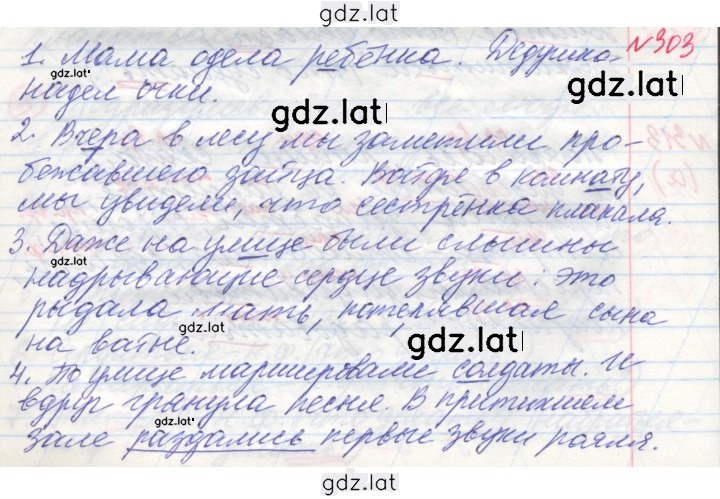 gdz.lat
№303
1. Мама одела ребёнка. Дедушка
gdz.lat
надел очки.
gdz.lat
gdz.lat
2. Вчера в лесу мы заметили про-
gdz.lat
бежавшего зайца. Войдя в комнату,
мы увидели, что сестрёнка плакала.
3. Даже на улице были слышны
gdz.lat
надрывающие сердце звуки: это
рыдала мать, потерявшая сына
gdz.lat
gdz.lat
на войне.
4. По улице маршировали солдаты. И
gdz.lat
вдруг грянула песня. В притихшем
gdz.lat
зале раздались первые звуки рояля.
gdz.lat